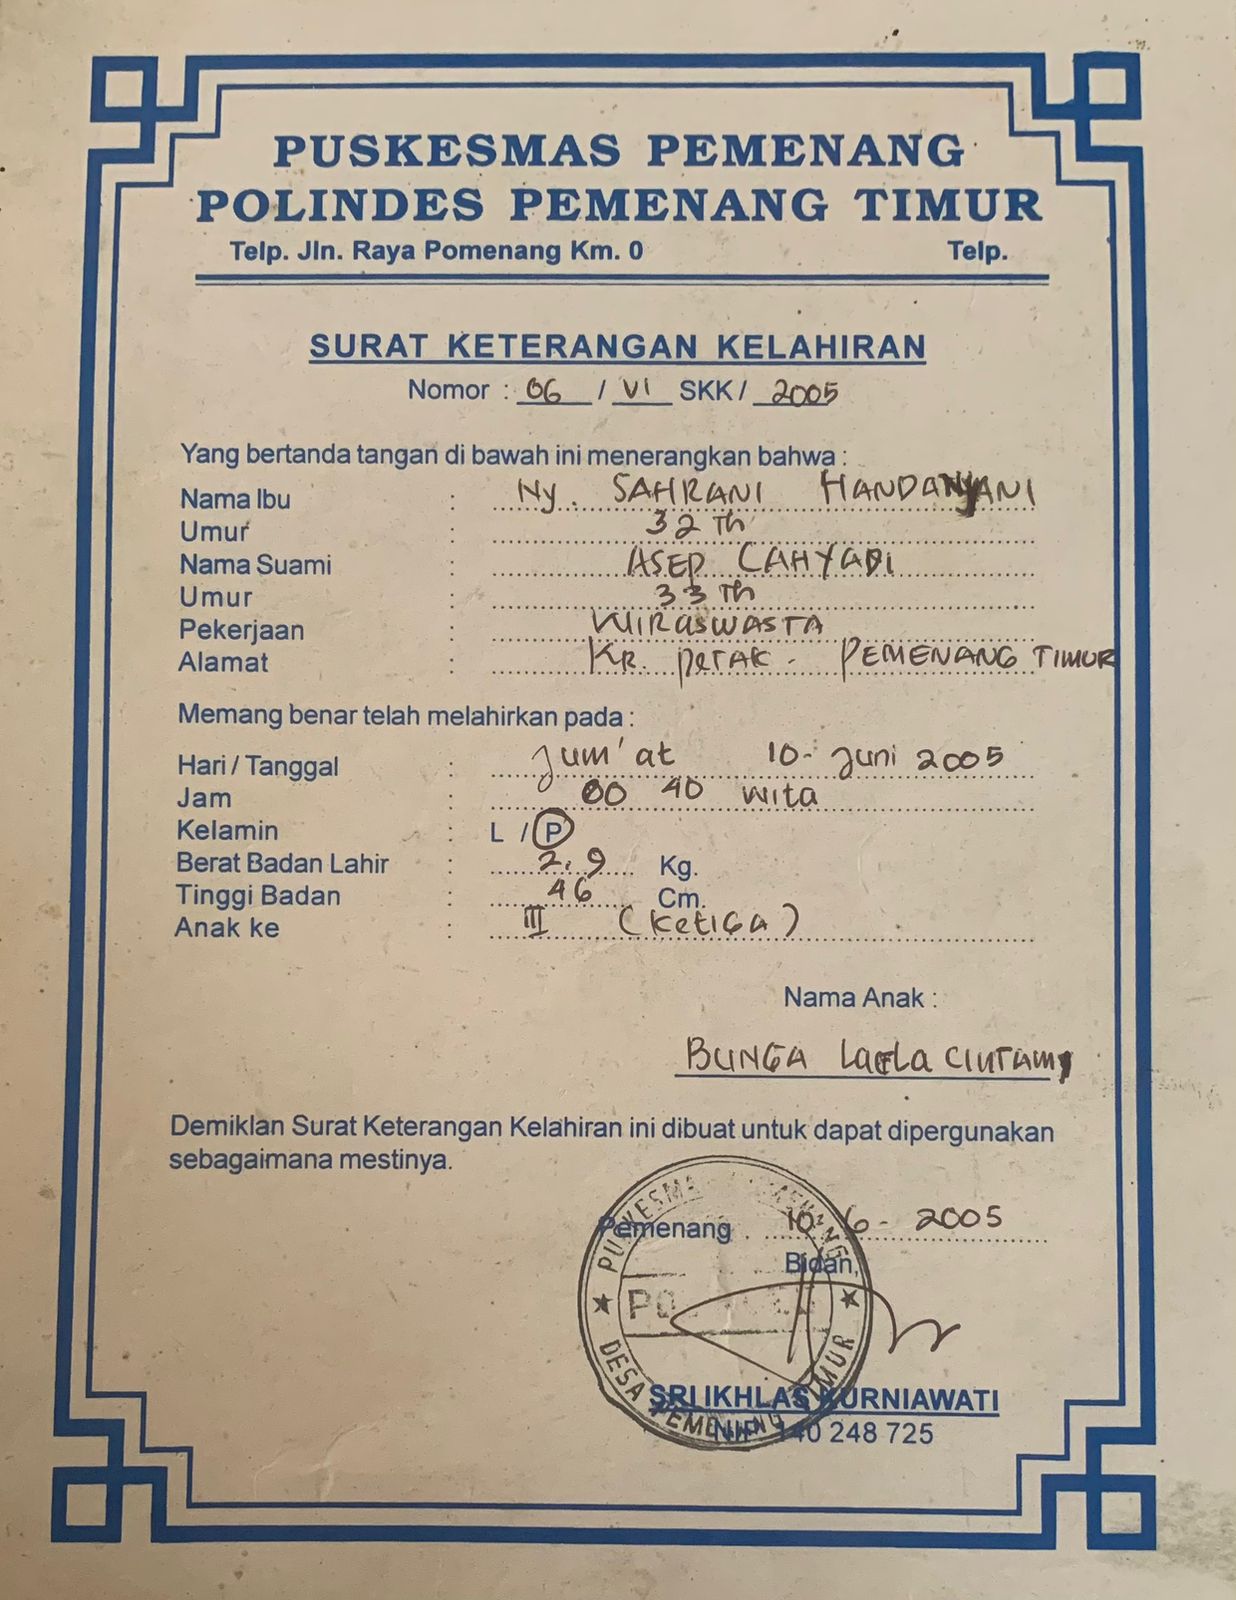 PUSKESMAS PEMENANG
POLINDES PEMENANG TIMUR
Telp. Jln. Raya Pomenang Km. 0 Telp.
SURAT KETERANGAN KELAHIRAN
Nomor : 06 / VI SKK / 2005
Yang bertanda tangan di bawah ini menerangkan bahwa :
Nama Ibu : Ny. SAHRANI HANDANYANI
Umur : 32 Th
Nama Suami : ASEP CAHYADI
Umur : 33 Th
Pekerjaan : WIRASWASTA
Alamat : KR. petak - PEMENANG TIMUR
Memang benar telah melahirkan pada :
Hari / Tanggal : Jum'at 10 - Juni 2005
Jam : 00 40 wita
Kelamin : L / P
Berat Badan Lahir : 2,9 Kg.
Tinggi Badan : 46 Cm.
Anak ke : III (Ketiga)
Nama Anak :
BUNGA Laela CIUTAMI
Demiklan Surat Keterangan Kelahiran ini dibuat untuk dapat dipergunakan
sebagaimana mestinya.
Pemenang . 10 - 6 - 2005
Bidan,
PUSKESMAS PEMENANG
DESA PEMENANG TIMUR
SRI IKHLAS KURNIAWATI
NIP 140 248 725